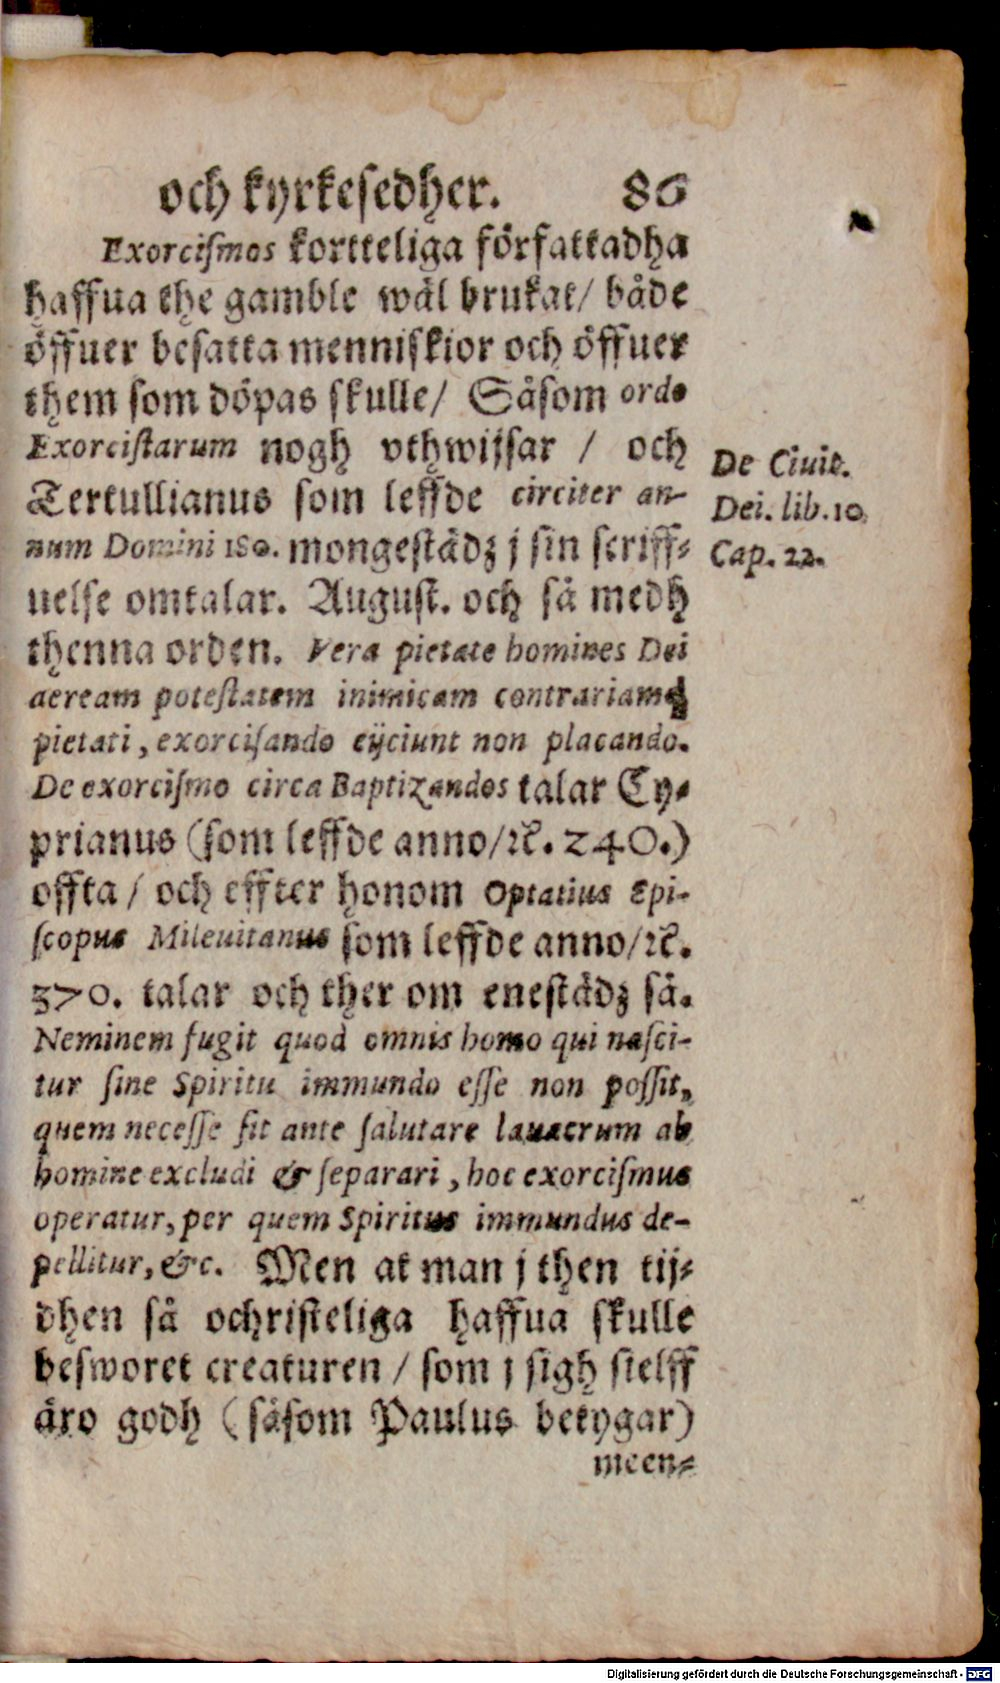 och kyrkesedher. 86
Exorciſmos kortteliga författadha
haffua the gamble wäl brukat/ både
öffuer besatta menniſkior och öffuer
them ſom döpas ſkulle/ Såſom ordo
Exorciſtarum nogh vthwijſar / och
Tertullianus ſom leffde circiter an-
num Domini 180. mongeſtädz j ſin ſcriff⸗
uelſe omtalar. Auguſt. och så medh
thenna orden. Vera pietate homines Dei
aeream poteſtatem inimicam contrariamq́
pietati, exorciſando eijciunt non placando.
De exorciſmo circa Baptizandos talar Cy⸗
prianus (ſom leffde anno/ꝛc̃. 240.)
offta / och effter honom Optatius Epi-
ſcopus Mileuitanus ſom leffde anno/ꝛc̃.
370. talar och ther om eneſtädz så.
Neminem fugit quod omnis homo qui naſci-
tur ſine Spiritu immundo eſſe non poſſit,
quem neceſſe ſit ante ſalutare lauacrum ab
homine excludi & ſeparari, hoc exorciſmus
operatur, per quem Spiritus immundus de-
pellitur, &c. Men at man j then tij⸗
dhen så ochriſteliga haffua ſkulle
beſworet creaturen / ſom j ſigh ſielff
äro godh (såſom Paulus betygar)
meen⸗
De Ciuit.
Dei. lib. 10.
Cap. 22.
Digitalisierung gefördert durch die Deutsche Forschungsgemeinschaft - DFG